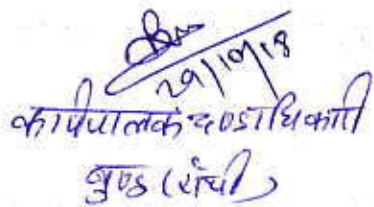 29/10/18
कार्यपालक दण्डाधिकारी
बुण्डू (राँची)